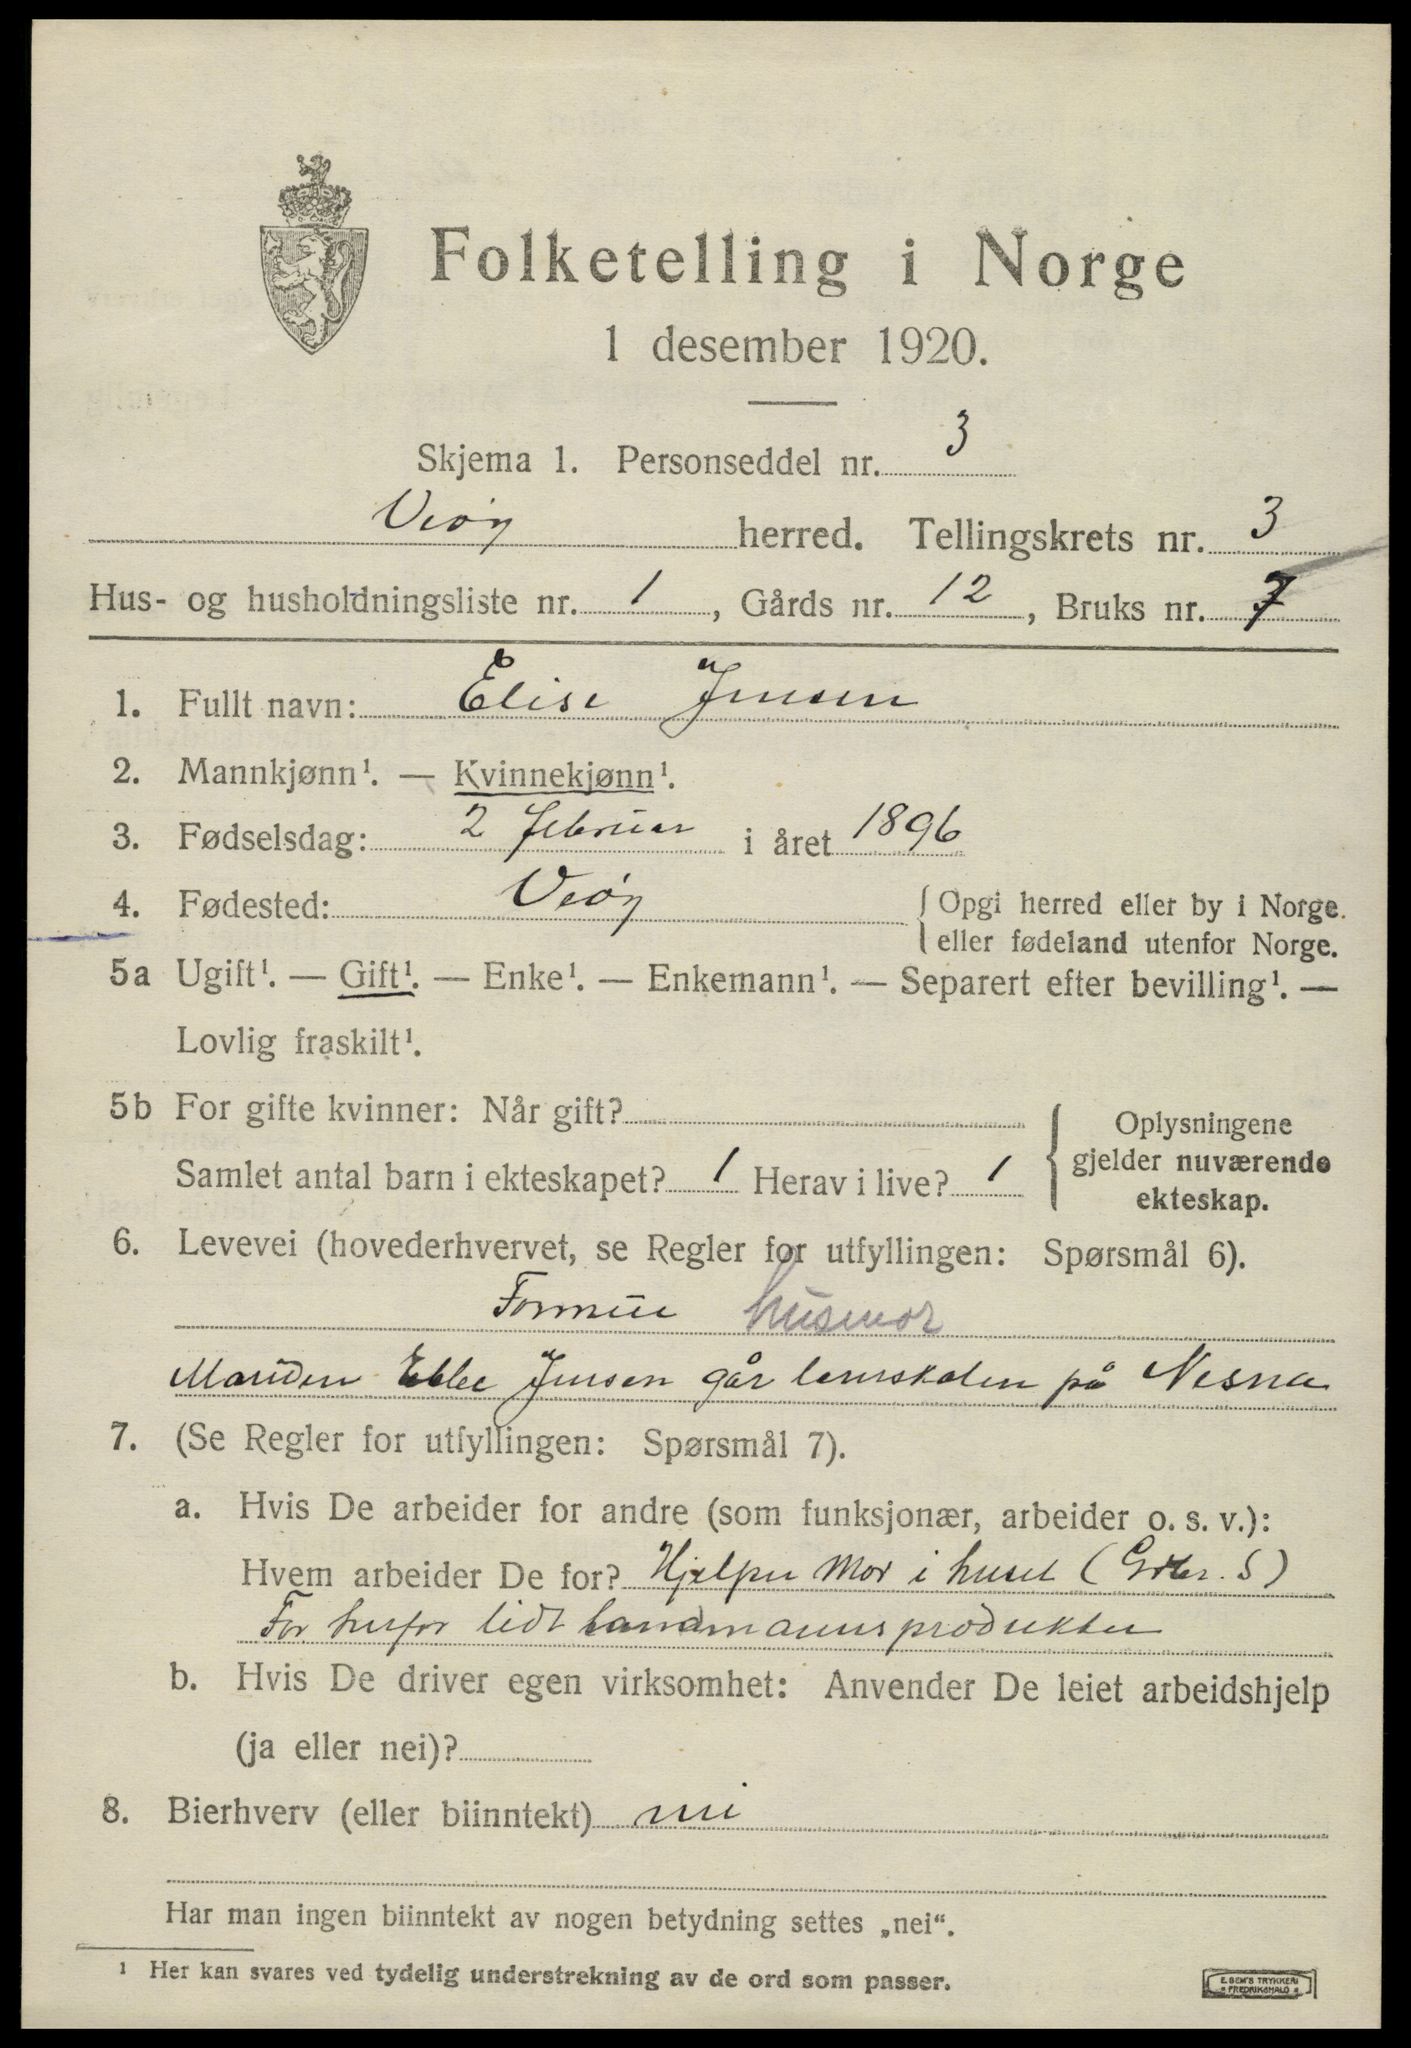 Folketelling i Norge
1 desember 1920.
Skjema 1. Personseddel nr. 3
Veøy herred. Tellingskrets nr. 3
Hus- og husholdningsliste nr. 1, Gårds nr. 12, Bruks nr. 7
1. Fullt navn: Elise Jensen
2. Mannkjønn¹. — Kvinnekjønn¹.
3. Fødselsdag: 2 februar i året 1896
4. Fødested: Veøy { Opgi herred eller by i Norge.
eller fødeland utenfor Norge.
5a Ugift¹. — Gift¹. — Enke¹. — Enkemann¹. — Separert efter bevilling¹. —
Lovlig fraskilt¹.
5b For gifte kvinner: Når gift?
Samlet antal barn i ekteskapet? 1 Herav i live? 1
Oplysningene
gjelder nuværende
ekteskap.
6. Levevei (hovederhvervet, se Regler for utfyllingen: Spørsmål 6).
husmor
Manden Jensen går lærerskolen på Nesna
7. (Se Regler for utfyllingen: Spørsmål 7).
a. Hvis De arbeider for andre (som funksjonær, arbeider o. s. v.):
Hvem arbeider De for? Hjelper Mor i huset (
lidt landmannsprodukter
b. Hvis De driver egen virksomhet: Anvender De leiet arbeidshjelp
(ja eller nei)?
8. Bierhverv (eller biinntekt) nei
Har man ingen biinntekt av nogen betydning settes „nei“.
¹ Her kan svares ved tydelig understrekning av de ord som passer.
E. SEM'S TRYKKERI
FREDRIKSHALD